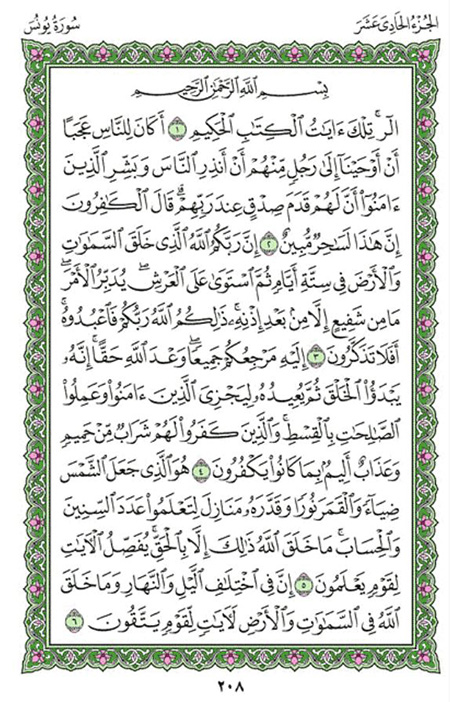 الجزء الحادي عشر
سورة يونس
بِسْمِ ٱللَّهِ ٱلرَّحْمَٰنِ ٱلرَّحِيمِ
الٓرۚ تِلْكَ ءَايَٰتُ ٱلْكِتَٰبِ ٱلْحَكِيمِ ١ أَكَانَ لِلنَّاسِ عَجَبًا
أَنْ أَوْحَيْنَآ إِلَىٰ رَجُلٍ مِّنْهُمْ أَنْ أَنذِرِ ٱلنَّاسَ وَبَشِّرِ ٱلَّذِينَ
ءَامَنُوٓا۟ أَنَّ لَهُمْ قَدَمَ صِدْقٍ عِندَ رَبِّهِمْۗ قَالَ ٱلْكَٰفِرُونَ
إِنَّ هَٰذَا لَسَٰحِرٌ مُّبِينٌ ٢ إِنَّ رَبَّكُمُ ٱللَّهُ ٱلَّذِى خَلَقَ ٱلسَّمَٰوَٰتِ
وَٱلْأَرْضَ فِى سِتَّةِ أَيَّامٍ ثُمَّ ٱسْتَوَىٰ عَلَى ٱلْعَرْشِۖ يُدَبِّرُ ٱلْأَمْرَۖ
مَا مِن شَفِيعٍ إِلَّا مِنۢ بَعْدِ إِذْنِهِۦۚ ذَٰلِكُمُ ٱللَّهُ رَبُّكُمْ فَٱعْبُدُوهُۚ
أَفَلَا تَذَكَّرُونَ ٣ إِلَيْهِ مَرْجِعُكُمْ جَمِيعًاۖ وَعْدَ ٱللَّهِ حَقًّاۚ إِنَّهُۥ
يَبْدَؤُا۟ ٱلْخَلْقَ ثُمَّ يُعِيدُهُۥ لِيَجْزِىَ ٱلَّذِينَ ءَامَنُوا۟ وَعَمِلُوا۟
ٱلصَّٰلِحَٰتِ بِٱلْقِسْطِۚ وَٱلَّذِينَ كَفَرُوا۟ لَهُمْ شَرَابٌ مِّنْ حَمِيمٍ
وَعَذَابٌ أَلِيمٌۢ بِمَا كَانُوا۟ يَكْفُرُونَ ٤ هُوَ ٱلَّذِى جَعَلَ ٱلشَّمْسَ
ضِيَآءً وَٱلْقَمَرَ نُورًا وَقَدَّرَهُۥ مَنَازِلَ لِتَعْلَمُوا۟ عَدَدَ ٱلسِّنِينَ
وَٱلْحِسَابَۚ مَا خَلَقَ ٱللَّهُ ذَٰلِكَ إِلَّا بِٱلْحَقِّۚ يُفَصِّلُ ٱلْءَايَٰتِ
لِقَوْمٍ يَعْلَمُونَ ٥ إِنَّ فِى ٱخْتِلَٰفِ ٱلَّيْلِ وَٱلنَّهَارِ وَمَا خَلَقَ
ٱللَّهُ فِى ٱلسَّمَٰوَٰتِ وَٱلْأَرْضِ لَءَايَٰتٍ لِّقَوْمٍ يَتَّقُونَ ٦
٢٠٨